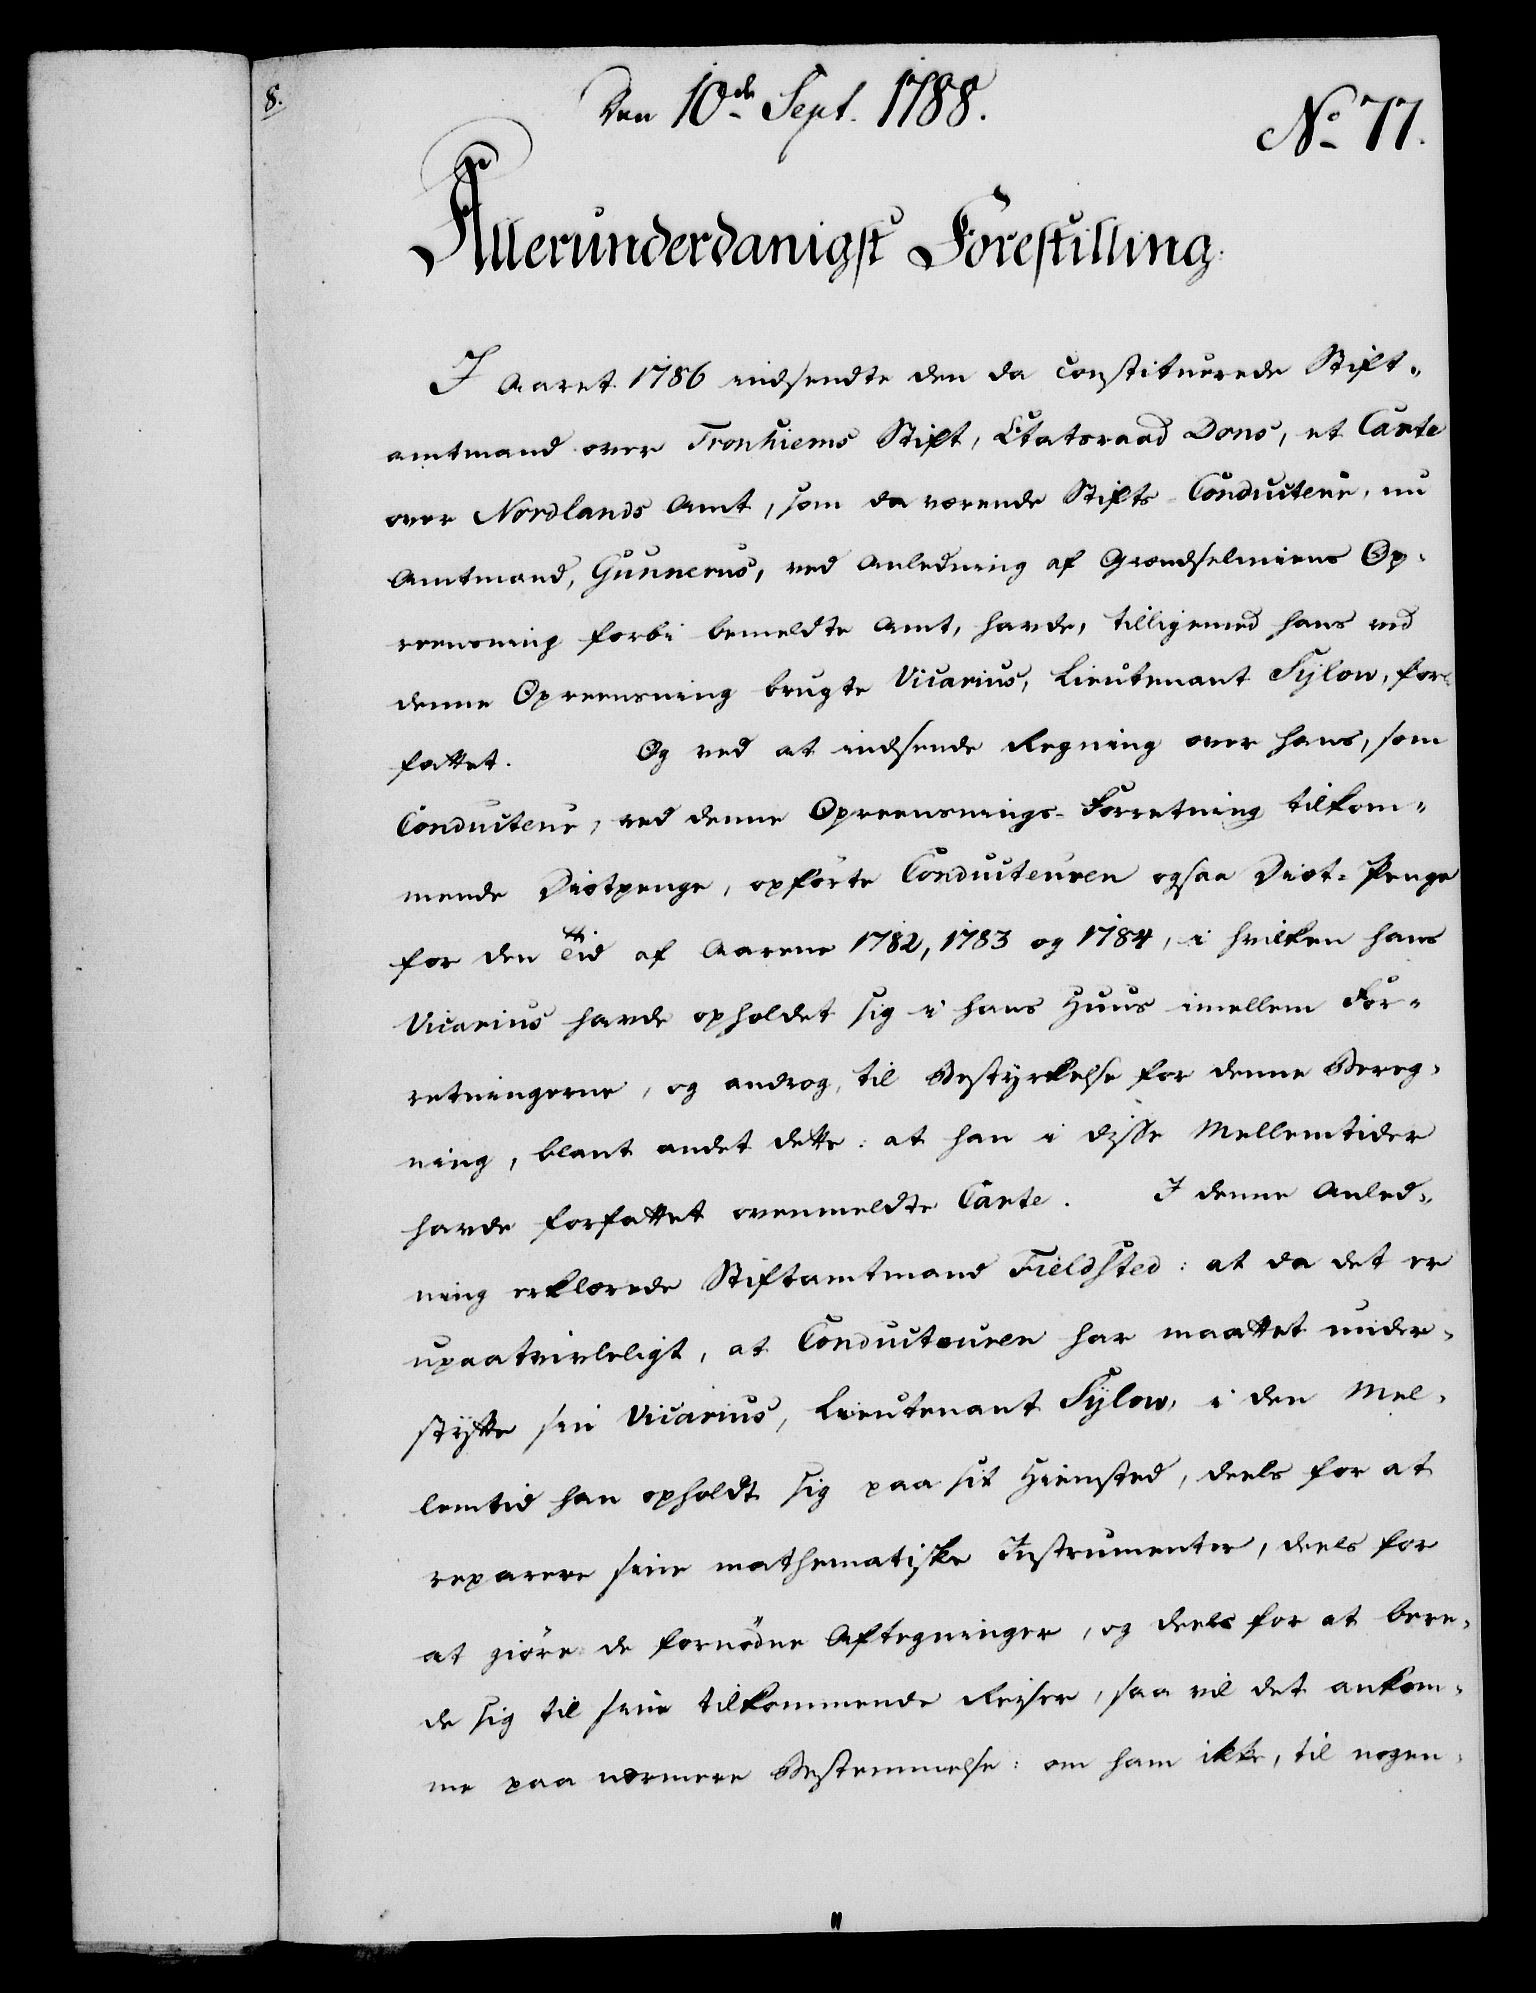 8.
Den 10de Sept. 1788.
No 77.
Allerunderdanigst Forestilling.
I Aaret 1786 indsendte den da constituerede Stift-
amtmand over Tronhiems Stift, Etatsraad Dons, et Carte
over Nordlands Amt, som da værende Stifts-Conducteur, nu
Amtmand, Gunnerus, ved Anledning af Grændselmiens Op-
reensning forbi bemeldte Amt, havde, tilligemed hans ved
denne Opreensning brugte Vicarius, Lieutenant Sylow, for-
fattet. Og ved at indsende Regning over hans, som
Conducteur, ved denne Opreensnings-Forretning tilkom-
mende Diætpenge, opførte Conducteuren ogsaa Diæt-Penge
for den Tid af Aarene 1782, 1783 og 1784, i hvilken hans
Vicarius havde opholdet sig i hans Huus imellem For-
retningerne, og androg, til Bestyrkelse for denne Bereg-
ning, blant andet dette: at han i disse Mellemtider
havde forfattet ovenmeldte Carte. I denne Anled-
ning erklærede Stiftamtmand Fieldsted: at da det er
upaatvivleligt, at Conducteuren har maattet under-
støtte sin Vicarius, Lieutenant Sylow, i den Mel-
lemtid han opholdt sig paa sit Hiemsted, deels for at
reparere sine mathematiske Instrumenter, deels for
at giøre de fornødne Aftegninger, og deels for at bere-
de sig til sine tilkommende Reiser, saa vil det ankom-
me paa nærmere Bestemmelse: om ham ikke, til nogen-